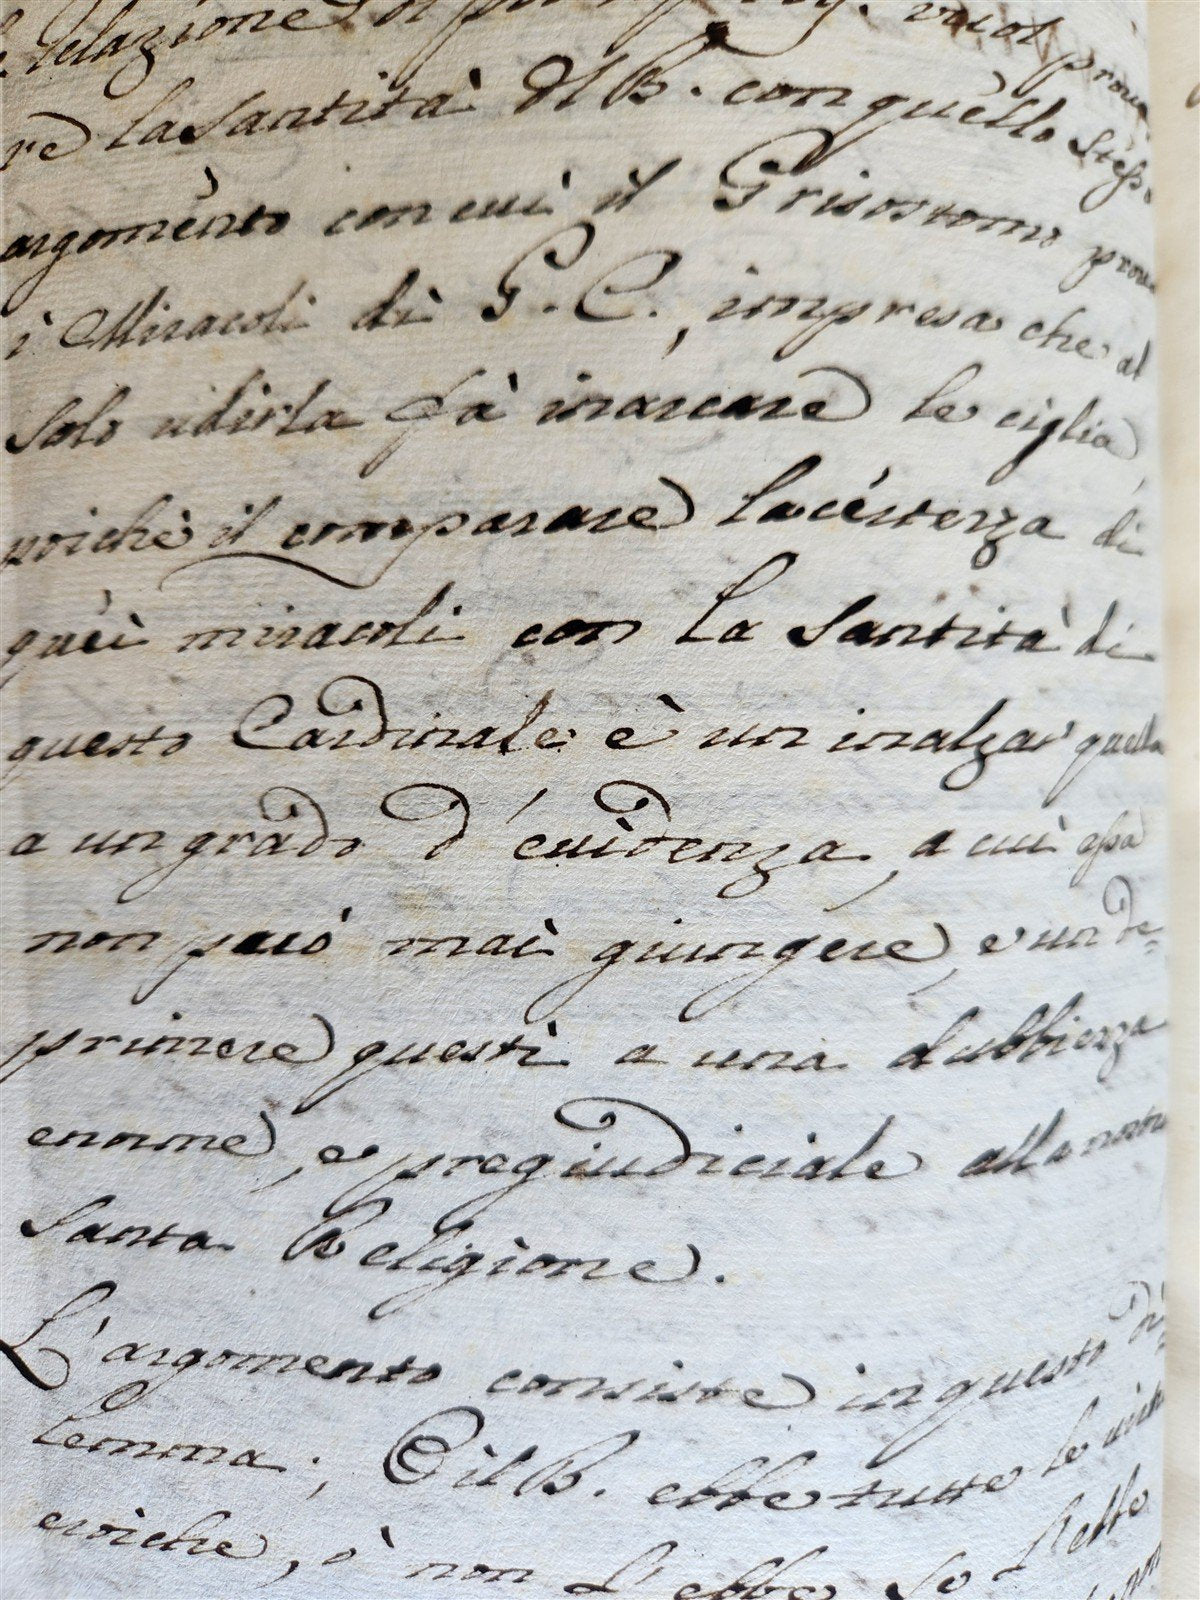 relazione vuol prova
re la Santità del B. con quello stesso
argomento con cui il Grisostomo prova
i Miracoli di G. C., impresa che al
solo udirla fà inarcare le ciglia,
poichè il comparare la certezza di
quei miracoli con la Santità di
questo Cardinale è un inalzar quella
a un grado d'evidenza, a cui essa
non può mai giungere, e un de=
primere questi a una dubbiezza
enorme, e pregiudiciale alla nostra
Santa Religione.
L'argomento consiste in questo di=
lemma; O il B. ebbe tutte le virtù
eroiche, ò non l'ebbe. Se l'ebbe